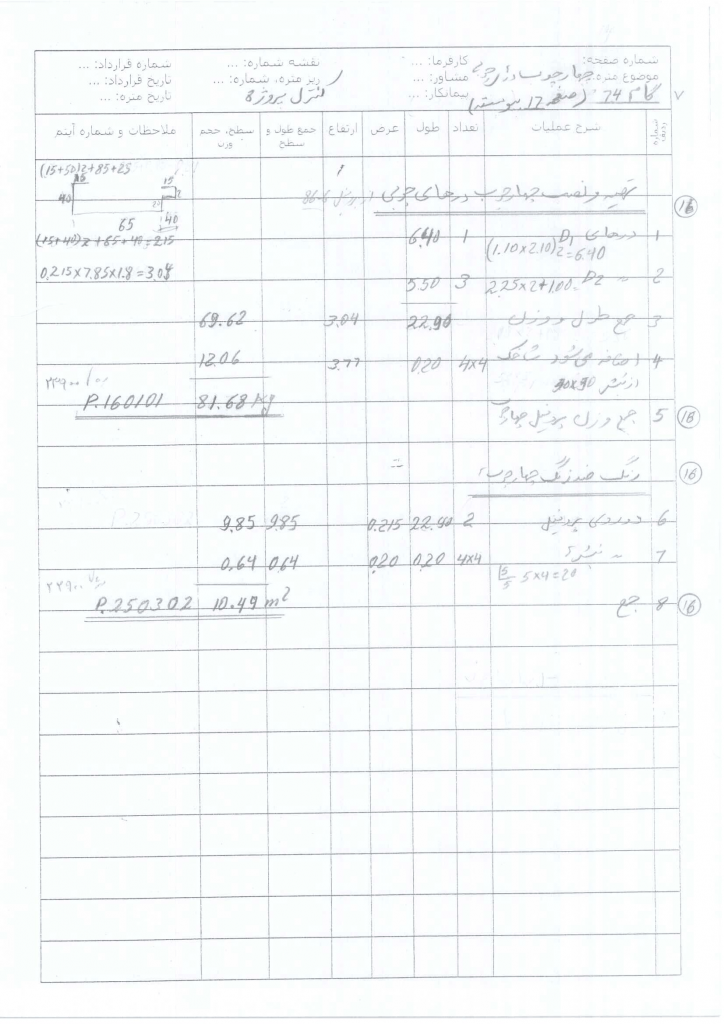 شماره صفحه: کارفرما: ... نقشه شماره: ... شماره قرارداد: ...
موضوع متره: چهارچوب مشاور: ... زیر متره، شماره: ... تاریخ قرارداد: ...
گام 74 (صفحه 17 پیوسته) پیمانکار: ... کنترل پروژه 8 تاریخ متره: ...
شماره ردیف شرح عملیات تعداد طول عرض ارتفاع جمع طول و سطح سطح، حجم وزن ملاحظات و شماره آیتم
(15+50)2+85+25
15 15 40 2 20
65 40
(15+40)2+65+40=215
0.215×7.85×1.8=3.04
16 تهیه و نصب چهارچوب درهای چوبی
1 درهای D1 (1.10×2.10)2=6.40 1 6.40
2 〃 D2 2.25×2+1.00 3 5.50
3 جمع طول و وزن 22.90 3.04 69.62
4 اضافه می‌شود شاخک از نبشی 4×4 0.20 3.77 12.06
۲۳۹۰۰
16 5 جمع وزن پروفیل چهارچوب 81.68 kg P.160101
16 رنگ ضدزنگ چهارچوب:
6 دو روی پروفیل 2 22.90 0.215 9.85 9.85
7 〃 نبشی 4×4 0.20 0.20 0.64 0.64
5 5 5×4=20
۲۲۹۰۰
16 8 جمع 10.49 m² P.250302